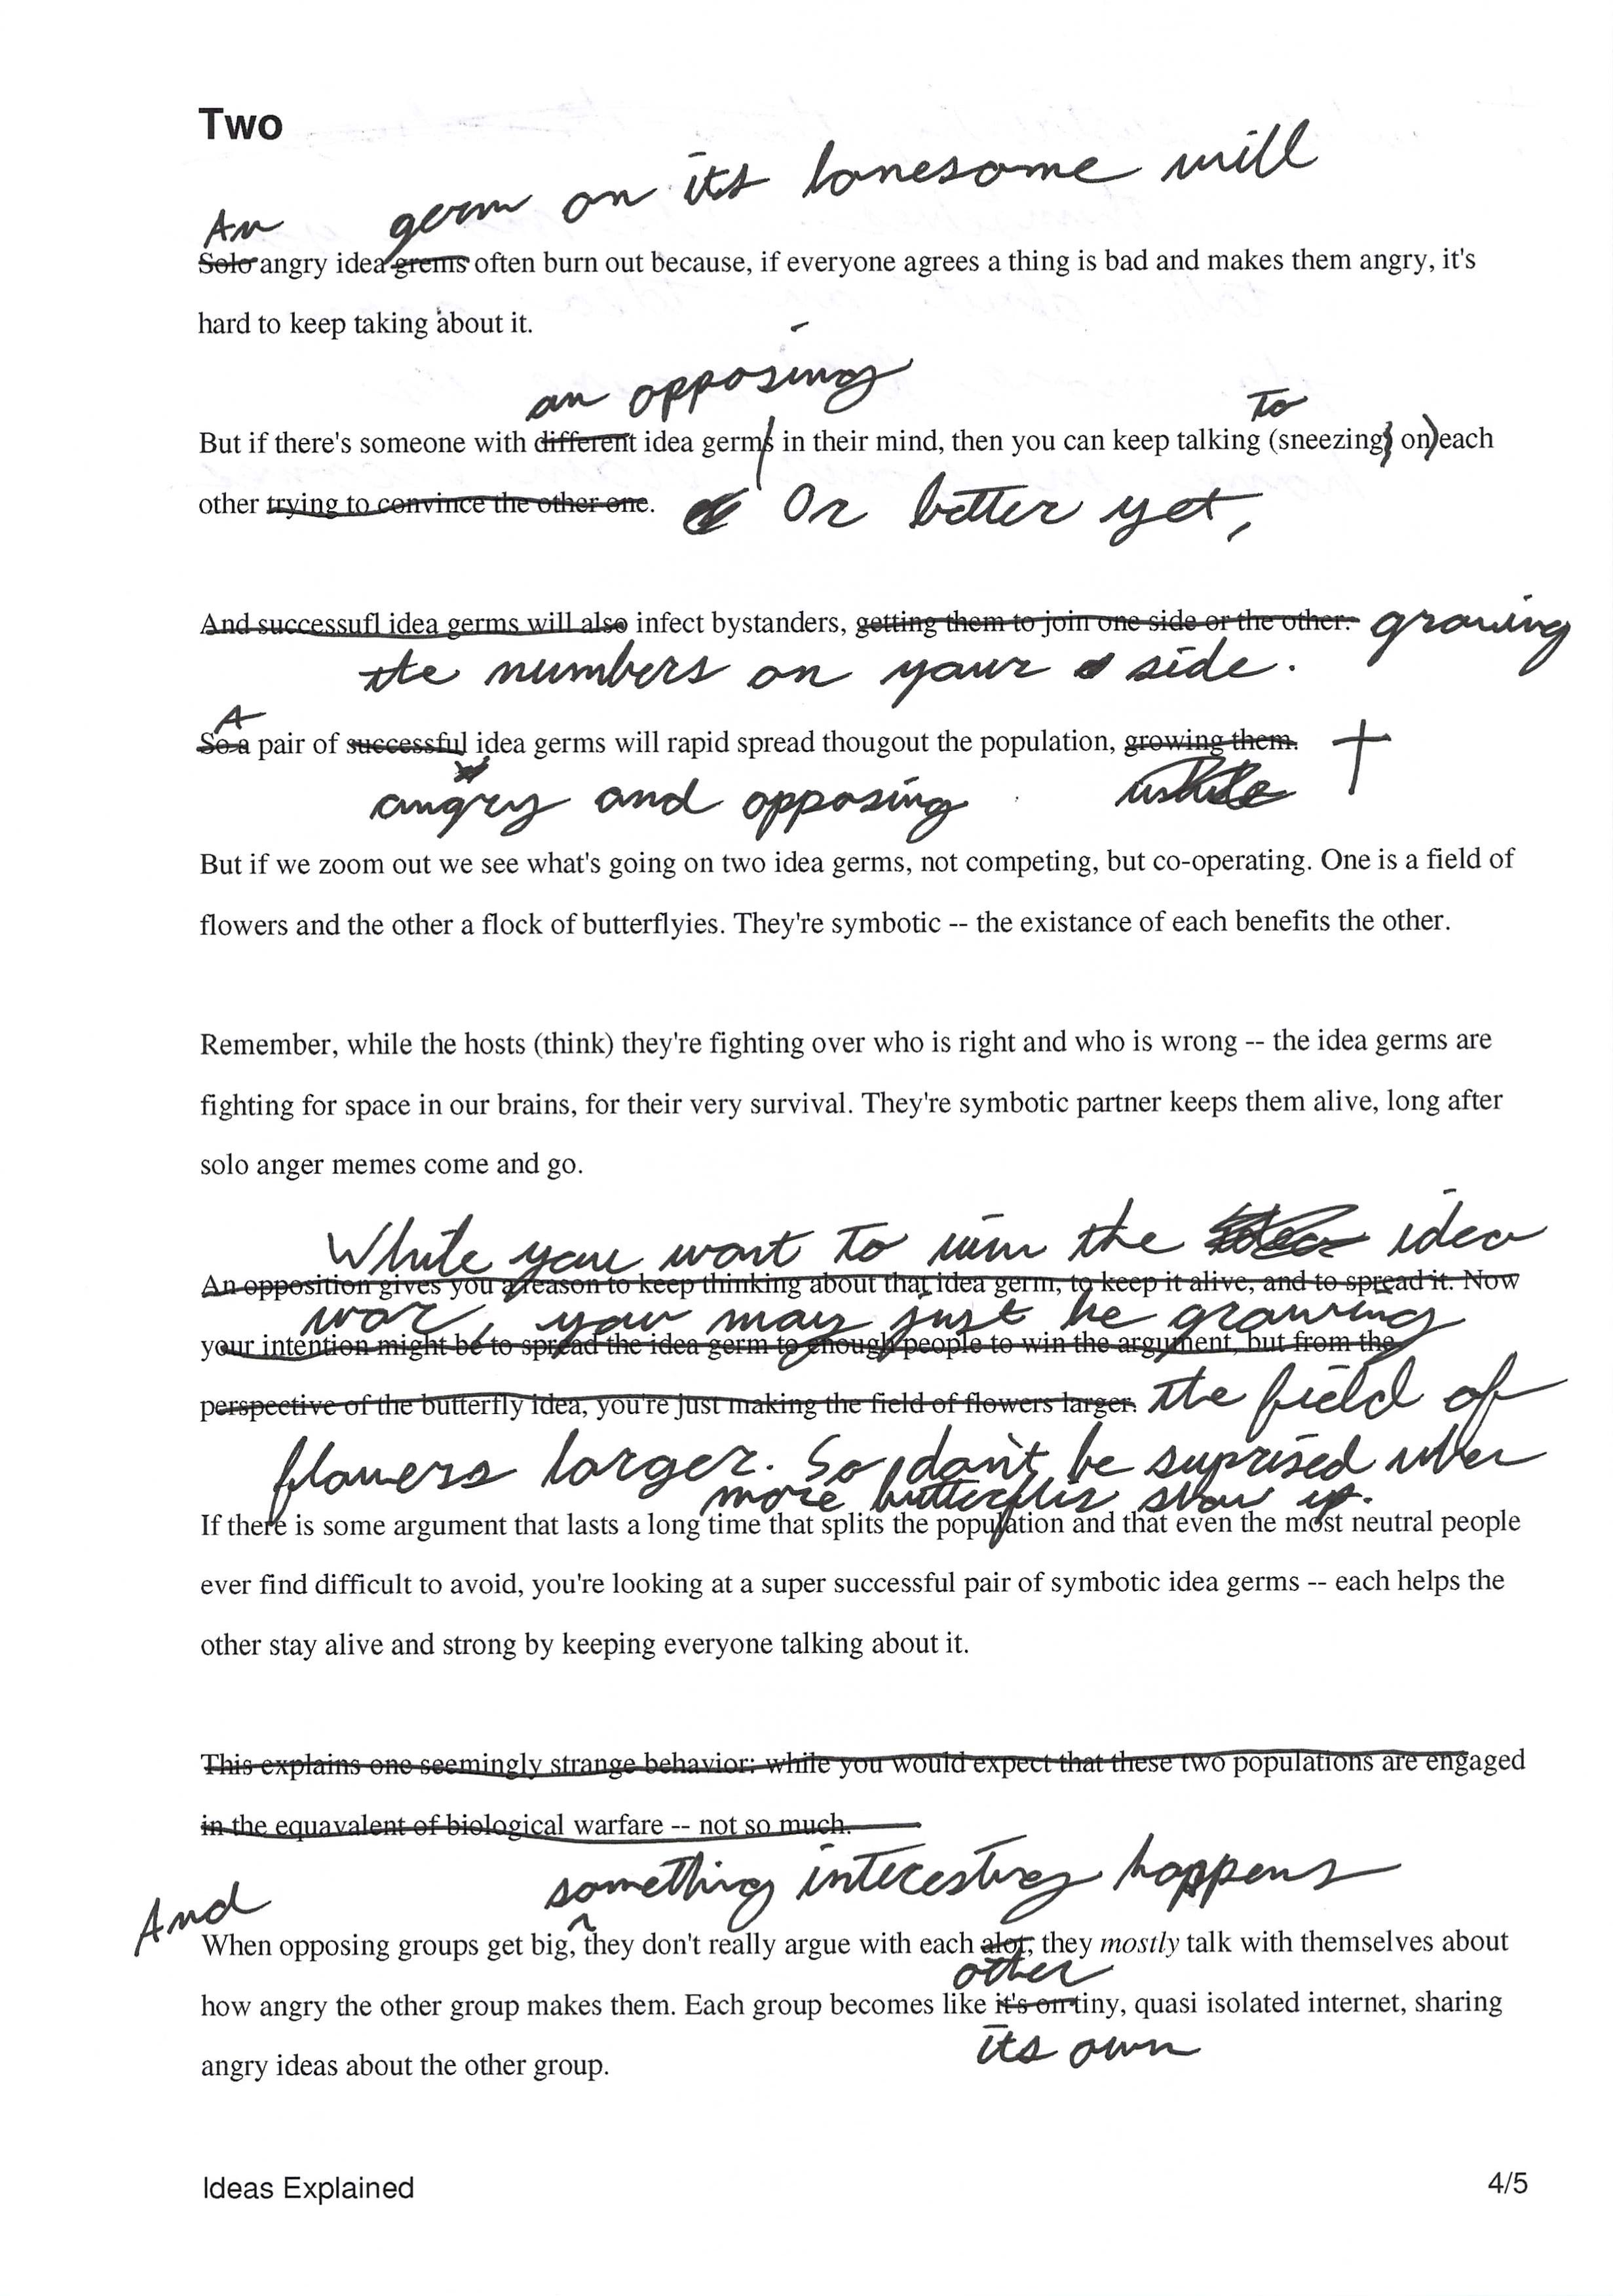 Two
An germ on its lonesome will
Solo angry idea grems often burn out because, if everyone agrees a thing is bad and makes them angry, it's
hard to keep taking about it.
an opposing
to
But if there's someone with different idea germs in their mind, then you can keep talking (sneezing) on) each
other trying to convince the other one. Or better yet,
And successufl idea germs will also infect bystanders, getting them to join one side or the other. growing
the numbers on your side.
A
So a pair of successful idea germs will rapid spread thougout the population, growing them. †
angry and opposing while
But if we zoom out we see what's going on two idea germs, not competing, but co-operating. One is a field of
flowers and the other a flock of butterflyies. They're symbotic -- the existance of each benefits the other.
Remember, while the hosts (think) they're fighting over who is right and who is wrong -- the idea germs are
fighting for space in our brains, for their very survival. They're symbotic partner keeps them alive, long after
solo anger memes come and go.
While you want to win the idea
An opposition gives you a reason to keep thinking about that idea germ, to keep it alive, and to spread it. Now
war, you may just be growing
your intention might be to spread the idea germ to enough people to win the argument, but from the
perspective of the butterfly idea, you're just making the field of flowers larger. the field of
flowers larger. So don't be suprised when
more butterflies show up.
If there is some argument that lasts a long time that splits the population and that even the most neutral people
ever find difficult to avoid, you're looking at a super successful pair of symbotic idea germs -- each helps the
other stay alive and strong by keeping everyone talking about it.
This explains one seemingly strange behavior: while you would expect that these two populations are engaged
in the equavalent of biological warfare -- not so much.
something interesting happens
And
When opposing groups get big, they don't really argue with each alot, they mostly talk with themselves about
other
how angry the other group makes them. Each group becomes like it's on tiny, quasi isolated internet, sharing
its own
angry ideas about the other group.
Ideas Explained 4/5